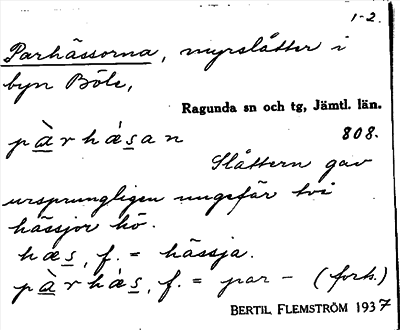 1-2.
Parhässorna, myrslåtter i
byn Böle,
Ragunda sn och tg, Jämtl. län.
pàrhæ̀san 808.
Slåttern gav
ursprungligen ungefär två
hässjor hö.
hæs, f. = hässja.
pàrhæ̀s, f. = par - (fork.)
BERTIL FLEMSTRÖM 1937